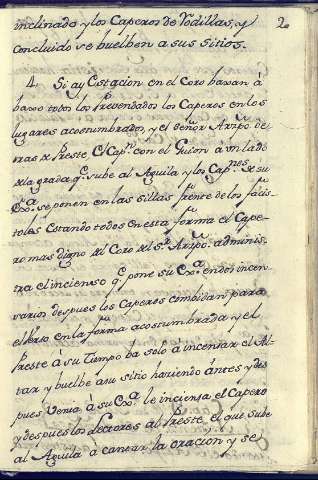 2
inclinado y los Caperos de Rodillas, y
concluido se buelben a sus sitios.
4. Si ay Estacion en el Coro baxan â
baxo todos los Prevendados los Caperos en los
lugares acostumbrados y el señor Arzpo. de-
tras el Preste Cl Capn. con el Guion a vn lado
de la grada qe. sube al Aguila y los Capnes. de su
Exa. se ponen en las sillas frente de los facis-
toles Estando todos en esta forma el Cape-
ro mas digno del Coro del Sr. Arzpo. adminis-
tra el incienso qe. pone su Exa. en dos incen-
sarios despues los Caperos combidan para
el Verso en la forma acostumbrada y el
Preste â su tiempo ba solo a incensar el Al-
tar y buelbe a su sitio haziendo ântes y des
pues Venia â su Exa. le inciensa el Capero
y despues los Rectores al Preste el que sube
al Aguila a cantar la oracion y se